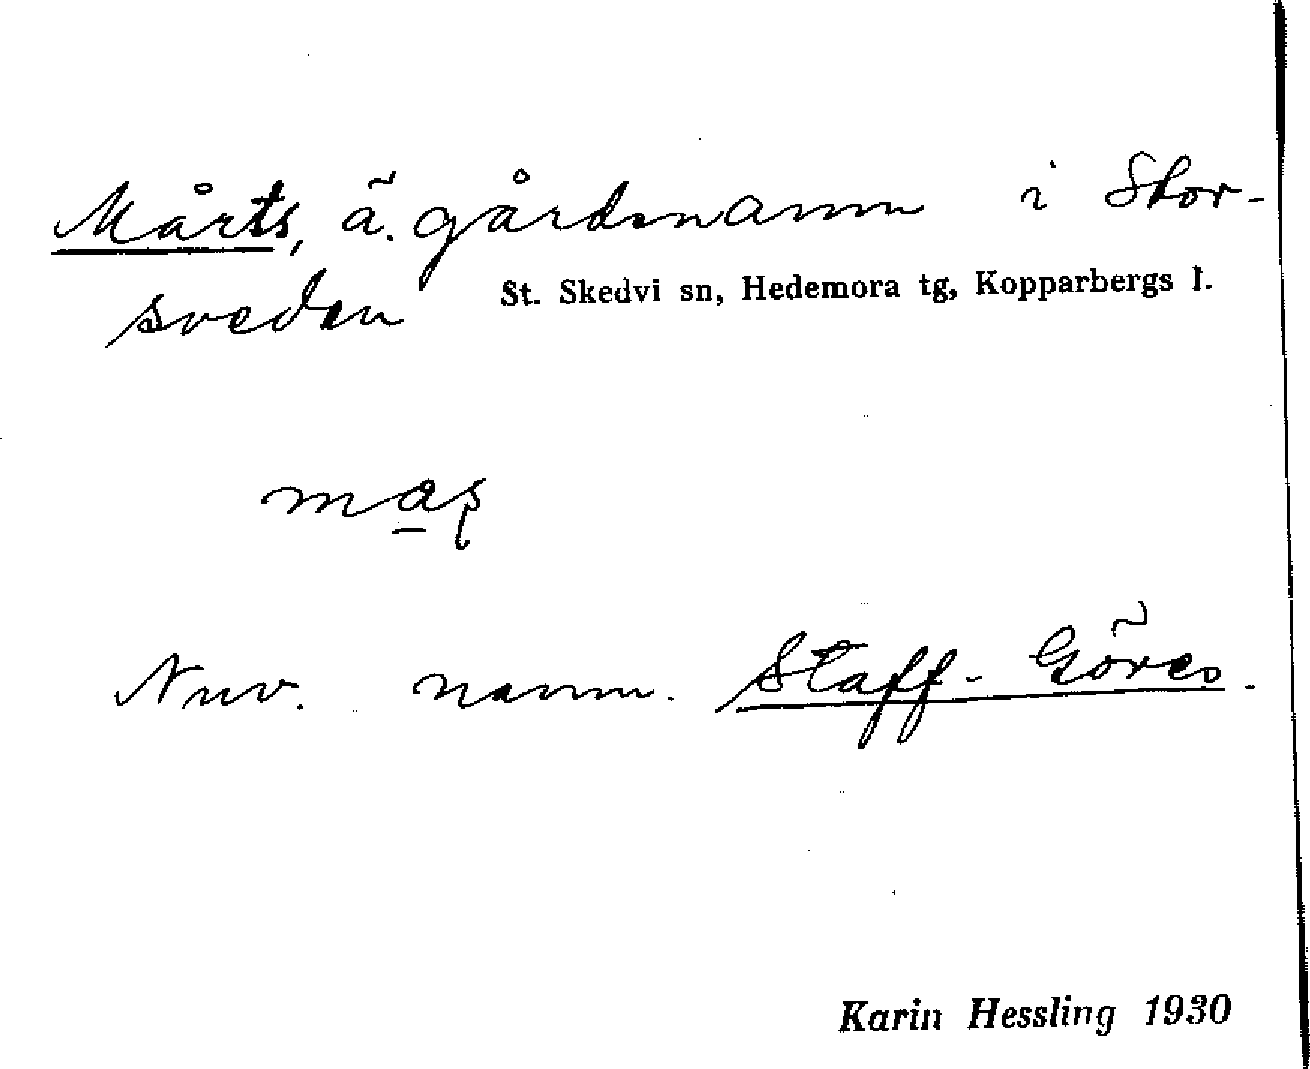 Mårts, ä. gårdsnamn i Stor-
sveden St. Skedvi sn, Hedemora tg, Kopparbergs l.
mas̩
Nuv. namn. Staff-Göres.
Karin Hessling 1930